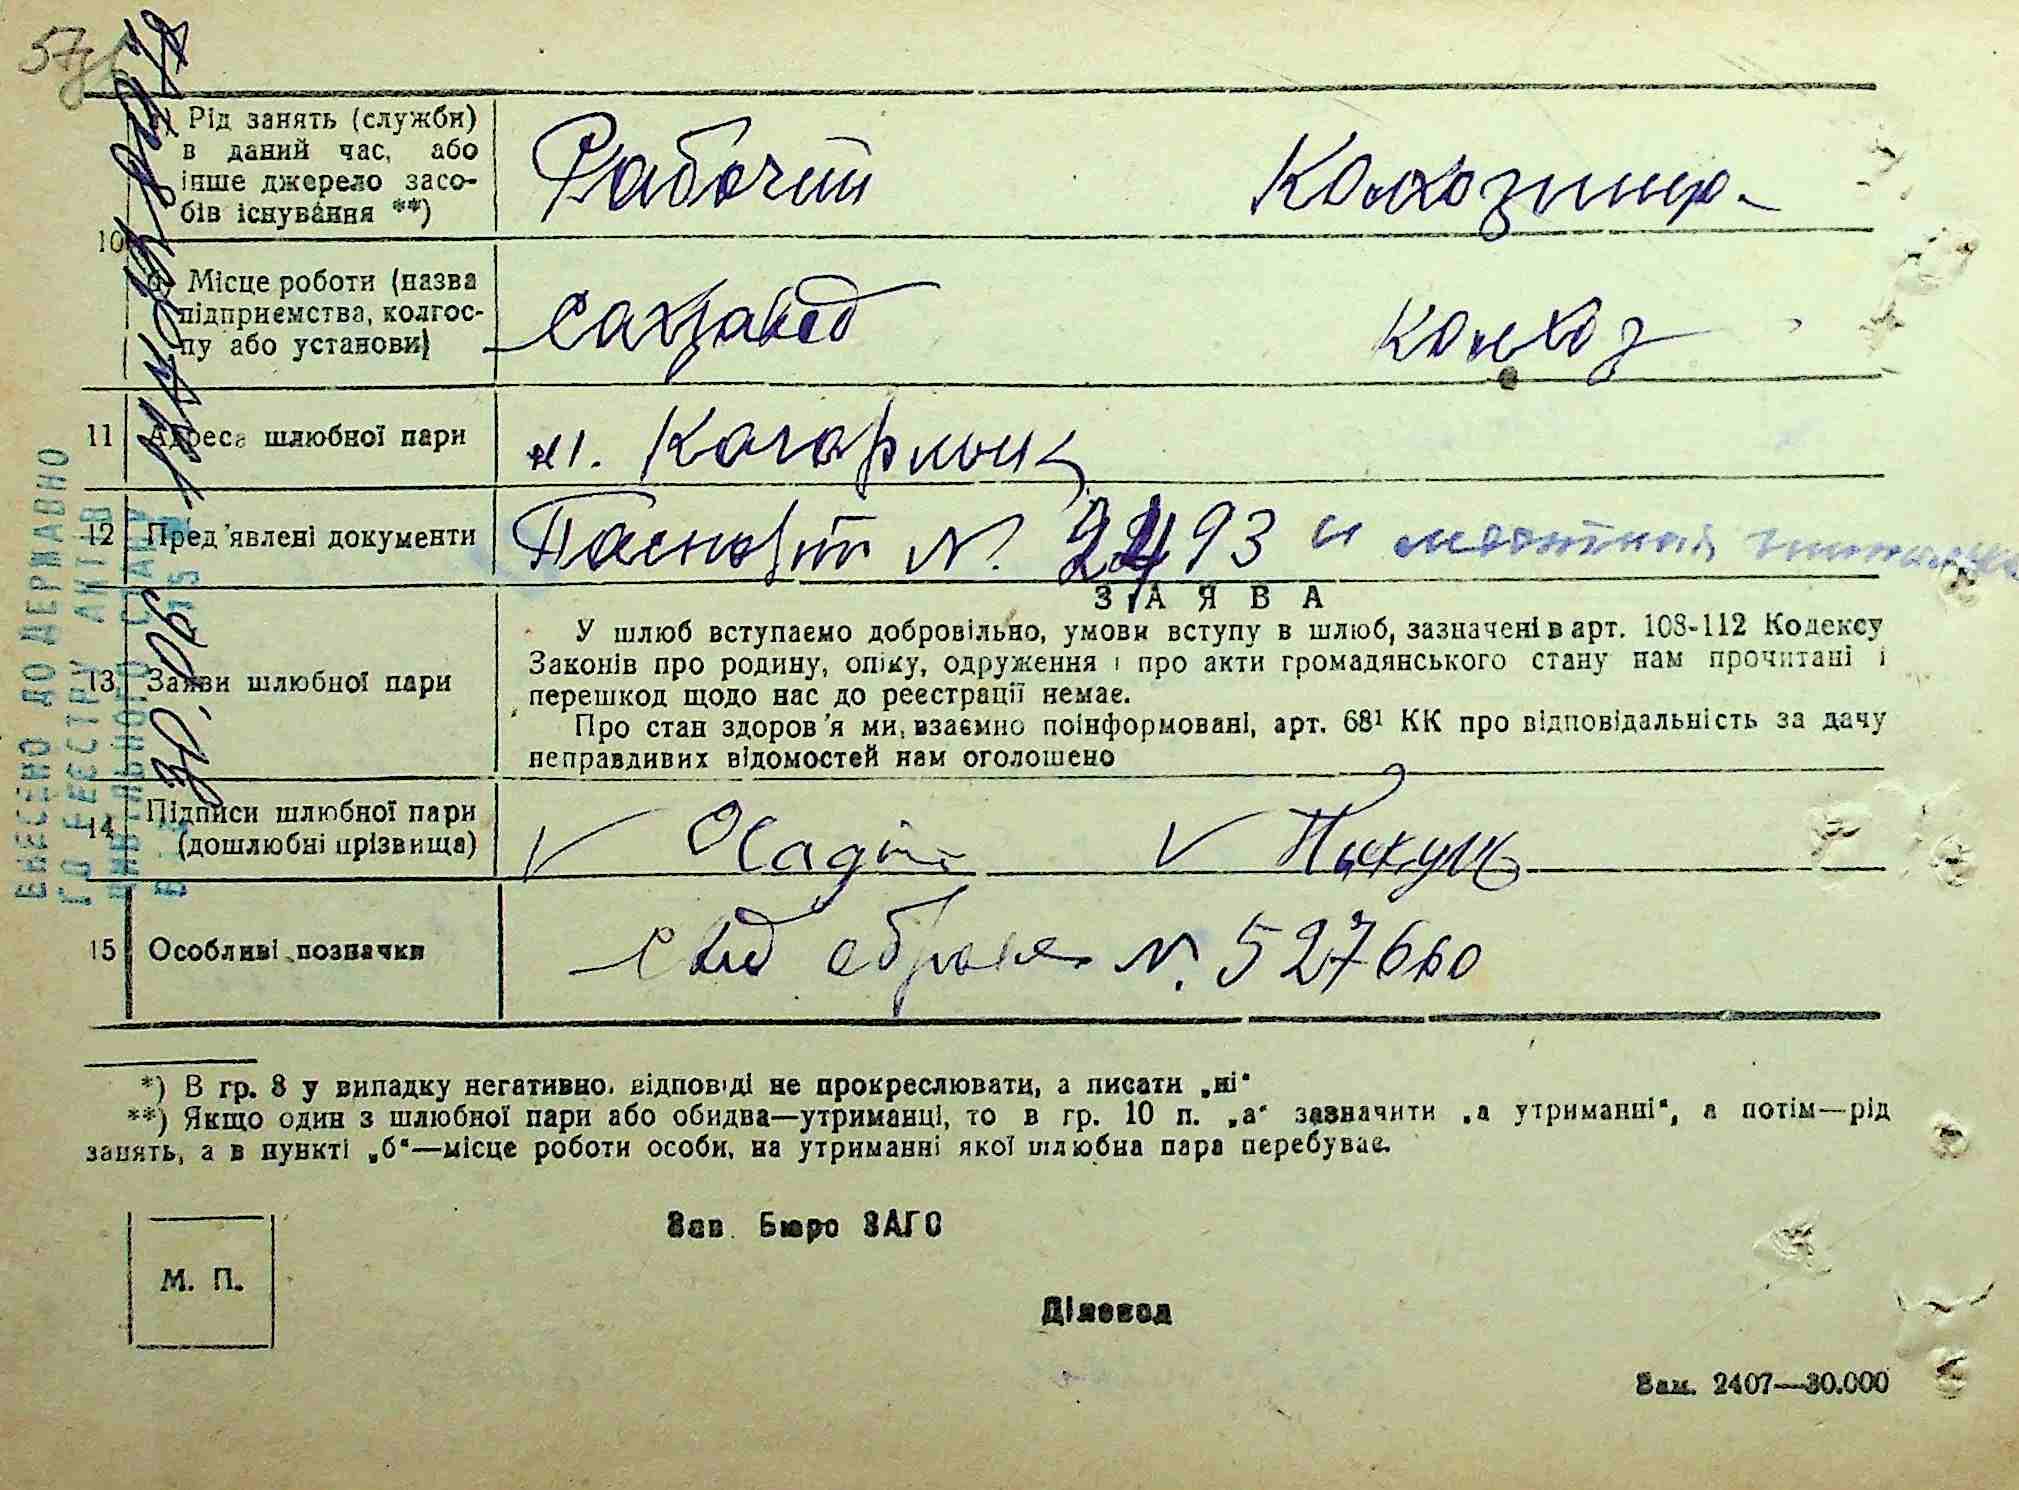 57
а) Рід занять (служби)
в даний час, або
інше джерело засо-
бів існування **)
Рабочий
Колхозница
10
Місце роботи (назва
підприємства, колгос-
пу або установи)
Сахзавод
колхоз
11 Адреса шлюбної пари
м. Кагарлык
12 Пред'явлені документи
Паспорт №
93 и
13 Заяви шлюбної пари
ЗАЯВА
У шлюб вступаємо добровільно, умови вступу в шлюб, зазначені в арт. 108-112 Кодексу
Законів про родину, опіку, одруження і про акти громадянського стану нам прочитані і
перешкод щодо нас до реєстрації немає.
Про стан здоров'я ми, взаємно поінформовані, арт. 68¹ КК про відповідальність за дачу
неправдивих відомостей нам оголошено
14 Підписи шлюбної пари
(дошлюбні прізвища)
V
V
15 Особливі позначки
свид о браке № 527660
*) В гр. 8 у випадку негативно. відповіді не прокреслювати, а писати „ні“
**) Якщо один з шлюбної пари або обидва—утриманці, то в гр. 10 п. „а“ зазначити „а утриманні“, а потім—рід
занять, а в пункті „б“—місце роботи особи, на утриманні якої шлюбна пара перебуває.
Зав. Бюро ЗАГС
М. П.
Діловод
Зам. 2407—30.000
ВНЕСЕНО ДО ДЕРЖАВНО
ГО РЕЄСТРУ АКТІВ
ЦИВІЛЬНОГО СТАНУ